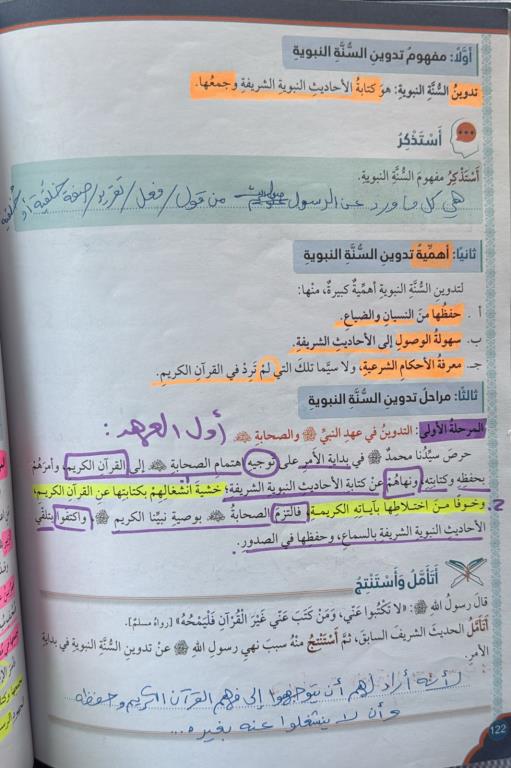 أوَّلًا: مفهومُ تدوينِ السُّنَّةِ النبويةِ
تدوينُ السُّنَّةِ النبويةِ: هوَ كتابةُ الأحاديثِ النبويةِ الشريفةِ وجمعُها.
أَسْتَذْكِرُ
أَسْتَذْكِرُ مفهومَ السُّنَّةِ النبويةِ.
هي كل ما ورد عن الرسول ﷺ من قول / فعل / تقرير / صفة خَلقيّة أو خُلُقية
ثانيًا: أهمِّيةُ تدوينِ السُّنَّةِ النبويةِ
لتدوينِ السُّنَّةِ النبويةِ أهمِّيةٌ كبيرةٌ، منْها:
أ . حفظُها منَ النسيانِ والضياعِ.
ب. سهولةُ الوصولِ إلى الأحاديثِ الشريفةِ.
جـ. معرفةُ الأحكامِ الشرعيةِ، ولا سيَّما تلكَ التي لمْ تَرِدْ في القرآنِ الكريمِ.
ثالثًا: مراحلُ تدوينِ السُّنَّةِ النبويةِ
المرحلةُ الأولى: التدوينُ في عهدِ النبيِّ ﷺ والصحابةِ أول العهد:
حرصَ سيِّدُنا محمدٌ ﷺ في بدايةِ الأمرِ على توجيهِ اهتمامِ الصحابةِ إلى القرآنِ الكريمِ، وأمرَهُمْ
بحفظِهِ وكتابتِهِ، ونهاهُمْ عنْ كتابةِ الأحاديثِ النبويةِ الشريفةِ؛ خشيةَ انشغالِهِمْ بكتابتِها عنِ القرآنِ الكريمِ،
2. وخوفًا منِ اختلاطِها بآياتِهِ الكريمةِ، فالتزمَ الصحابةُ بوصيةِ نبيِّنا الكريمِ ﷺ، واكتفَوا بتلقّي
الأحاديثِ النبويةِ الشريفةِ بالسماعِ، وحفظِها في الصدورِ.
أَتَأَمَّلُ وَأَسْتَنْتِجُ
قالَ رسولُ اللهِ ﷺ: «لا تَكْتُبوا عَنّي، وَمَنْ كَتَبَ عَنّي غَيْرَ القُرْآنِ فَلْيَمْحُهُ» [رواهُ مسلمٌ].
أَتَأَمَّلُ الحديثَ الشريفَ السابقَ، ثمَّ أَسْتَنْتِجُ منْهُ سببَ نهيِ رسولِ اللهِ ﷺ عنْ تدوينِ السُّنَّةِ النبويةِ في بدايةِ
الأمرِ.
لأنه أراد لهم أن يتوجهوا إلى فهم القرآن الكريم وحفظه
وأن لا ينشغلوا عنه بغيره...
122